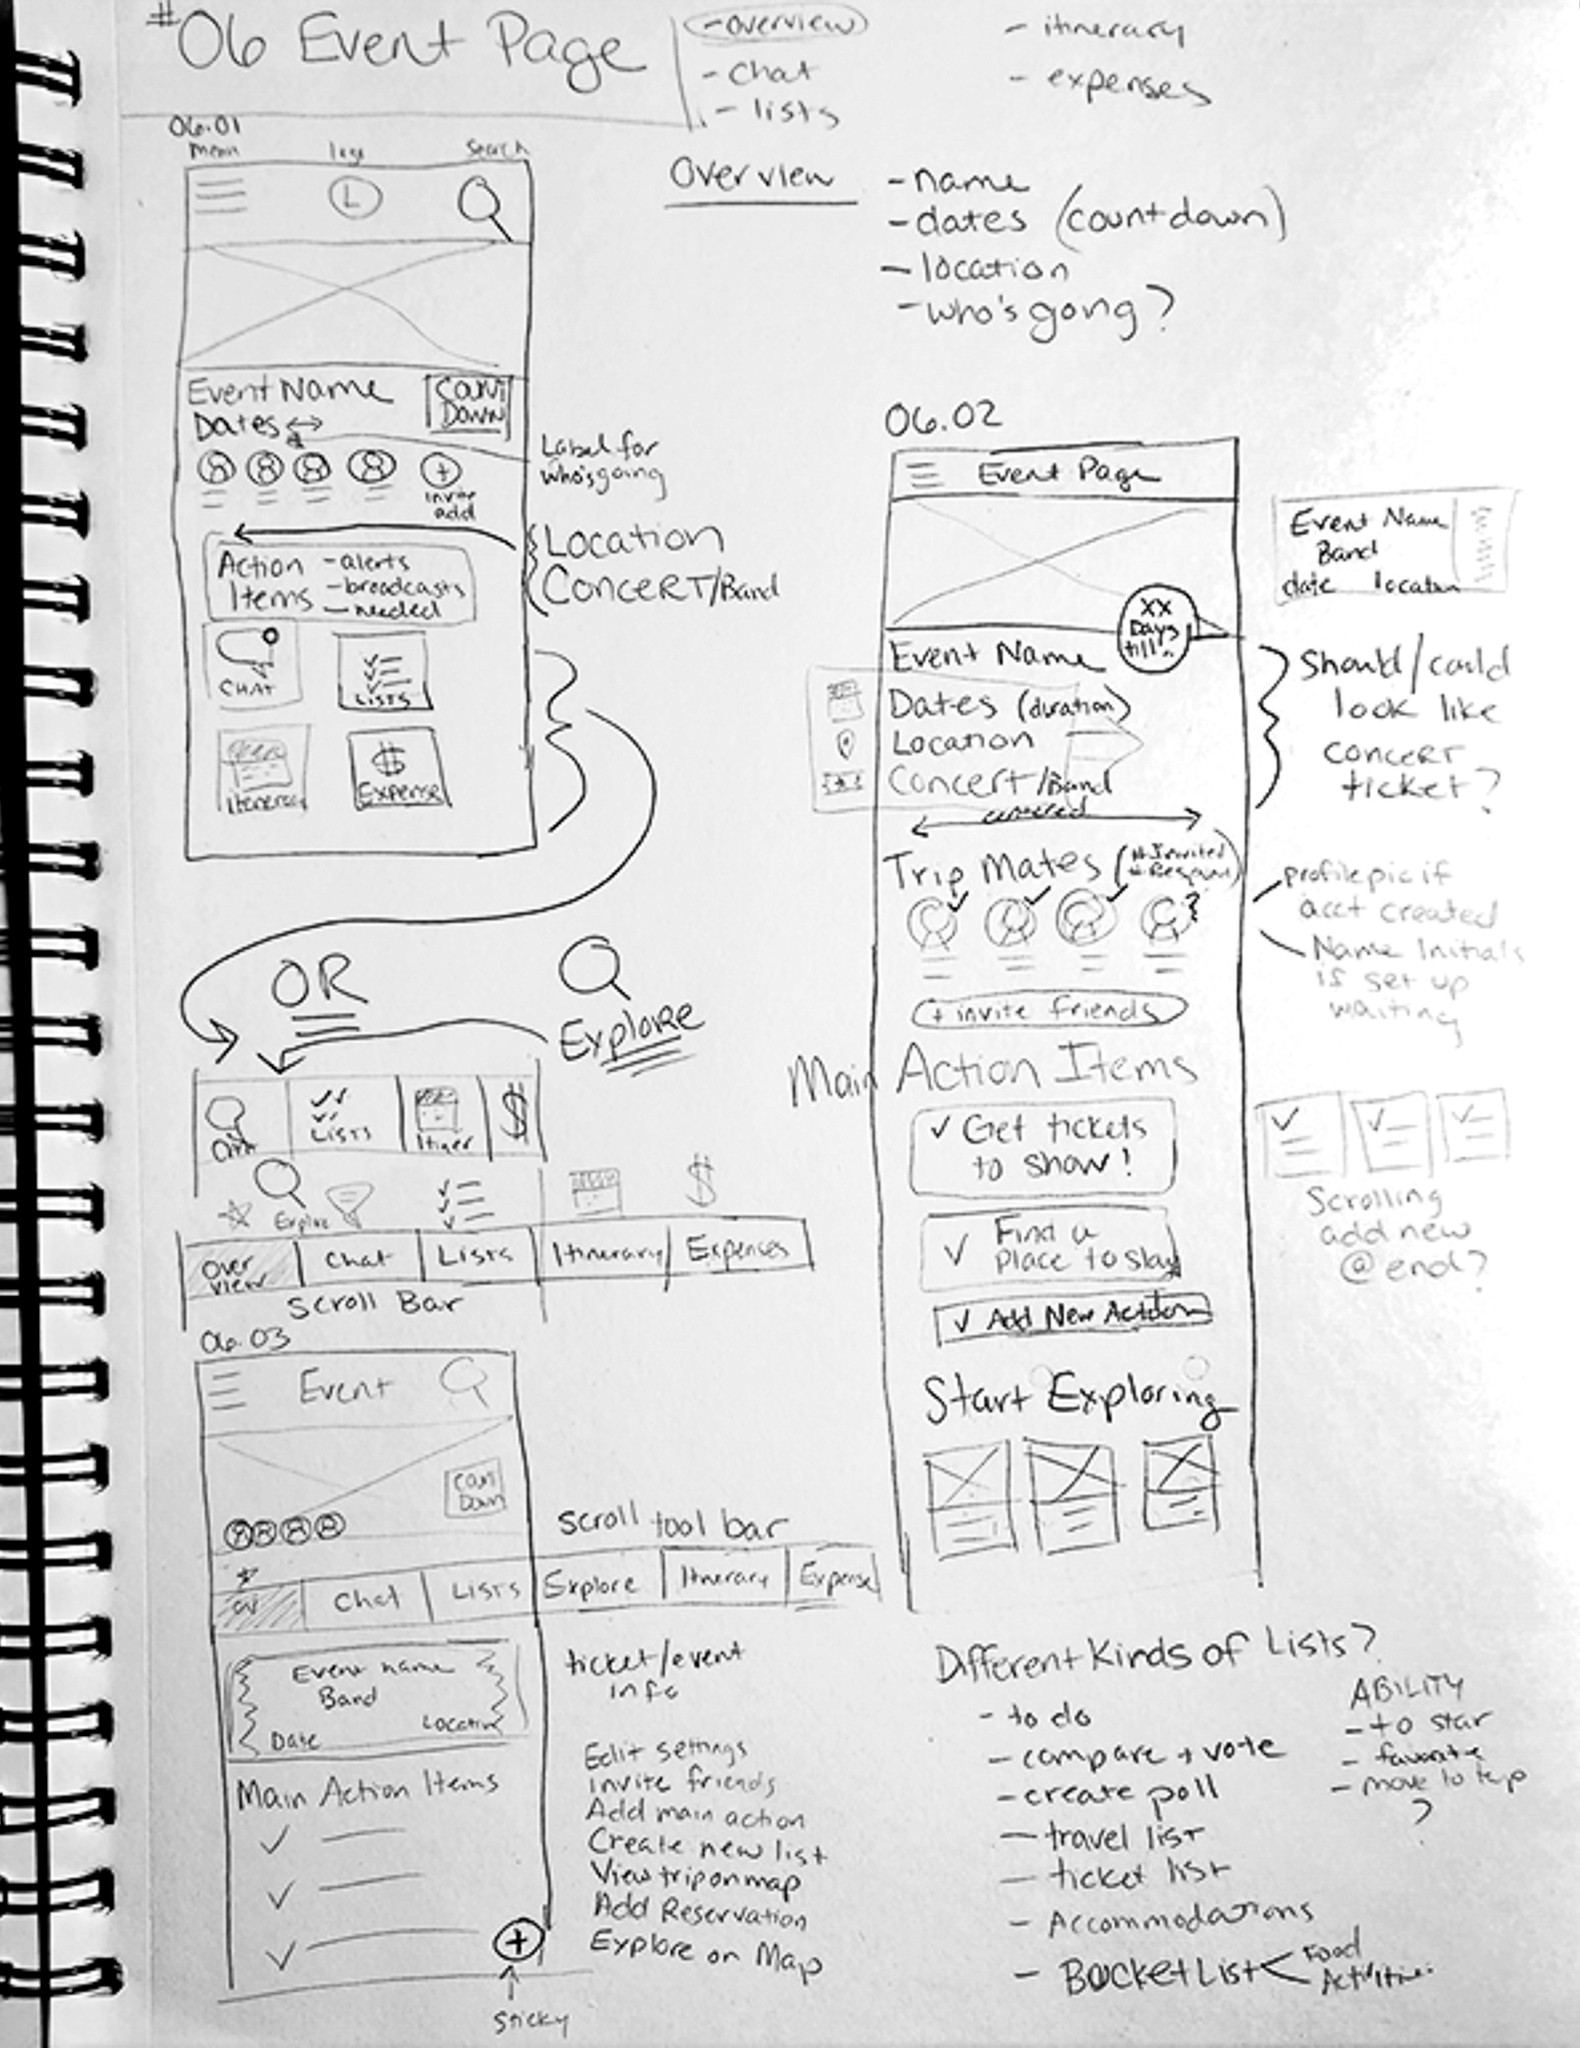 #06 Event Page
- overview
- chat
- lists
- itinerary
- expenses
06.01
menu logo Search
L
Overview
- name
- dates (countdown)
- location
- who's going?
Event Name
Dates
Count
Down
Label for
who's going
invite
add
Location
Concert/Band
Action Items
- alerts
- broadcasts
- needed
CHAT
LISTS
Expense
$
OR
Explore
Chat
Lists
Itiner
$
Explore
$
Over
view
Chat
Lists
Itinerary
Expenses
Scroll Bar
06.02
Event Page
XX
Days
till..
Event Name
Dates (duration)
Location
Concert/Band
centered
Event Name
Band
date location
Should/could
look like
concert
ticket?
Trip Mates (# Invited
profile pic if
acct created
Name Initials
if set up
waiting
+ invite friends
Main Action Items
✓ Get tickets
to show!
✓ Find a
Place to stay
✓ Add New Action
Scrolling
add new
@ end?
Start Exploring
06.03
Event
Count
Down
scroll tool bar
OV
Chat
Lists
Explore
Itinerary
Expense
Event name
Band
Date
Location
ticket/event
info
Main Action Items
Edit settings
Invite friends
Add main action
Create new list
View trip on map
Add Reservation
Explore on Map
+
sticky
Different Kinds of Lists?
- to do
- compare + vote
- create poll
- travel list
- ticket list
- Accommodations
- Bucket List < Food
Activities
ABILITY
- to star
- favorite
- move to top
?